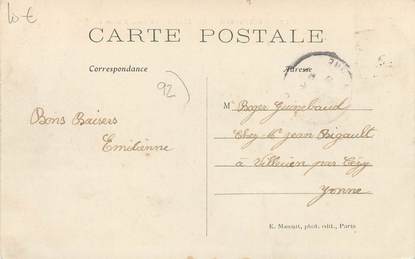 10 €
CARTE POSTALE
Correspondance
Adresse
92)
Bons Baisers
Emilienne
M
Chez M. Jean Rigault
à Villevien par Cézy
Yonne
E. Mannit, phot. édit., Paris